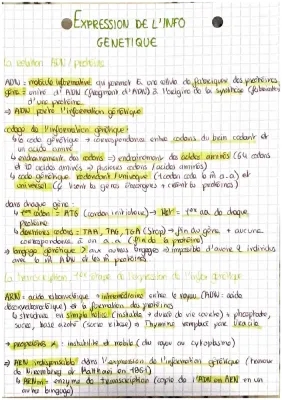 EXPRESSION DE L'INFO
GENETIQUE
La relation ADN / protéines
ADN = molécule informative qui permet à une cellule de fabriquer des protéines
gène = unité d'ADN (fragment d'ADN) à l'origine de la synthèse (fabrication)
d'une protéine
⇒ ADN porte l'information génétique
codage de l'information génétique :
code génétique = correspondance entre codons du brin codant et
un acide aminé
enchainement des codons ⇒ enchainement des acides aminés (64 codons
et 20 acides aminés ⇒ plusieurs codons / acides aminés)
code génétique redondant / univoque (1 codon code 1 a.a) et
universel
dans chaque gène :
1er codon = ATG (codon initiateur) → Met = 1er aa de chaque
protéine
derniers codons = TAA, TAG, TGA (Stop) → fin du gène + aucune
correspondance à un a.a (fin de la protéine)
langage génétique ⇒ impossible d'avoir 2 individus
avec le m ADN et les m protéines
La transcription, 1ère étape de l'expression de l'info génétique
ARN = acide ribonucléique → intermédiaire entre le noyau (ADN : acide
désoxyribonucléique) et la formation des protéines
→ structure en simple hélice (instable → durée de vie courte) → phosphate,
sucre, base azoté (sucre ribose) → Thymine remplacé par Uracile
→ propriétés : instabilité et mobile (du noyau au cytoplasme)
⇒ ARN indispensable dans l'expression de l'information génétique (travaux
de Nirenberg et Matthaei en 1961)
ARNm : enzyme de transcription (copie de l'ADN en ARN en un
autre langage)